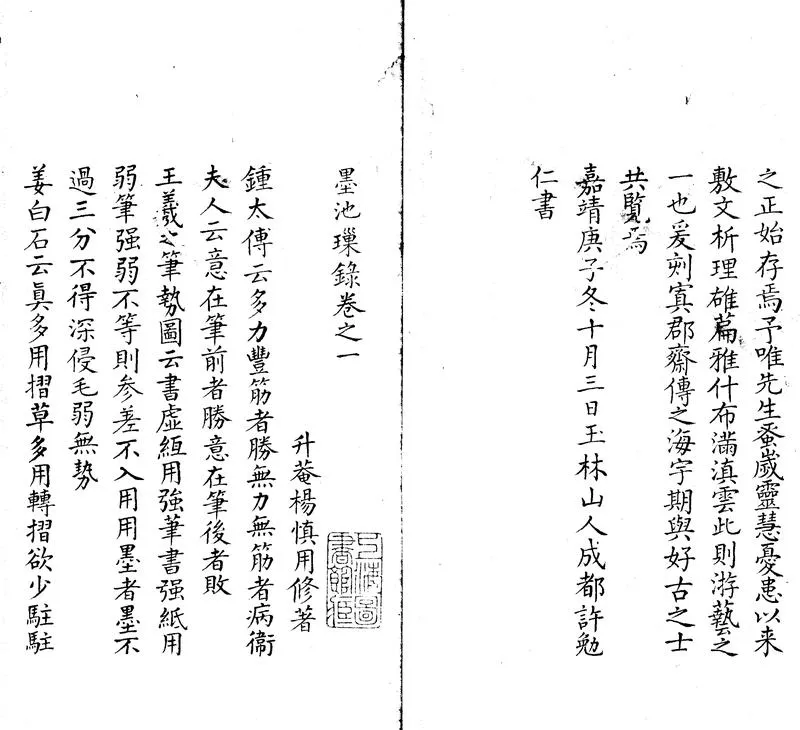 之正始存焉予唯先生蚤歲靈慧憂患以来
敷文析理雄篇雅什布滿滇雲此則游藝之
一也爰刻寘郡齋傳之海宇期與好古之士
共覽焉
嘉靖庚子冬十月三日玉林山人成都許勉
仁書
墨池璅錄卷之一
升菴楊慎用修著
鍾太傅云多力豐筋者勝無力無筋者病衞
夫人云意在筆前者勝意在筆後者敗
王羲之筆勢圖云書虛紙用強筆書强紙用
弱筆强弱不等則参差不入用用墨者墨不
過三分不得深侵毛弱無勢
姜白石云眞多用摺草多用轉摺欲少駐駐